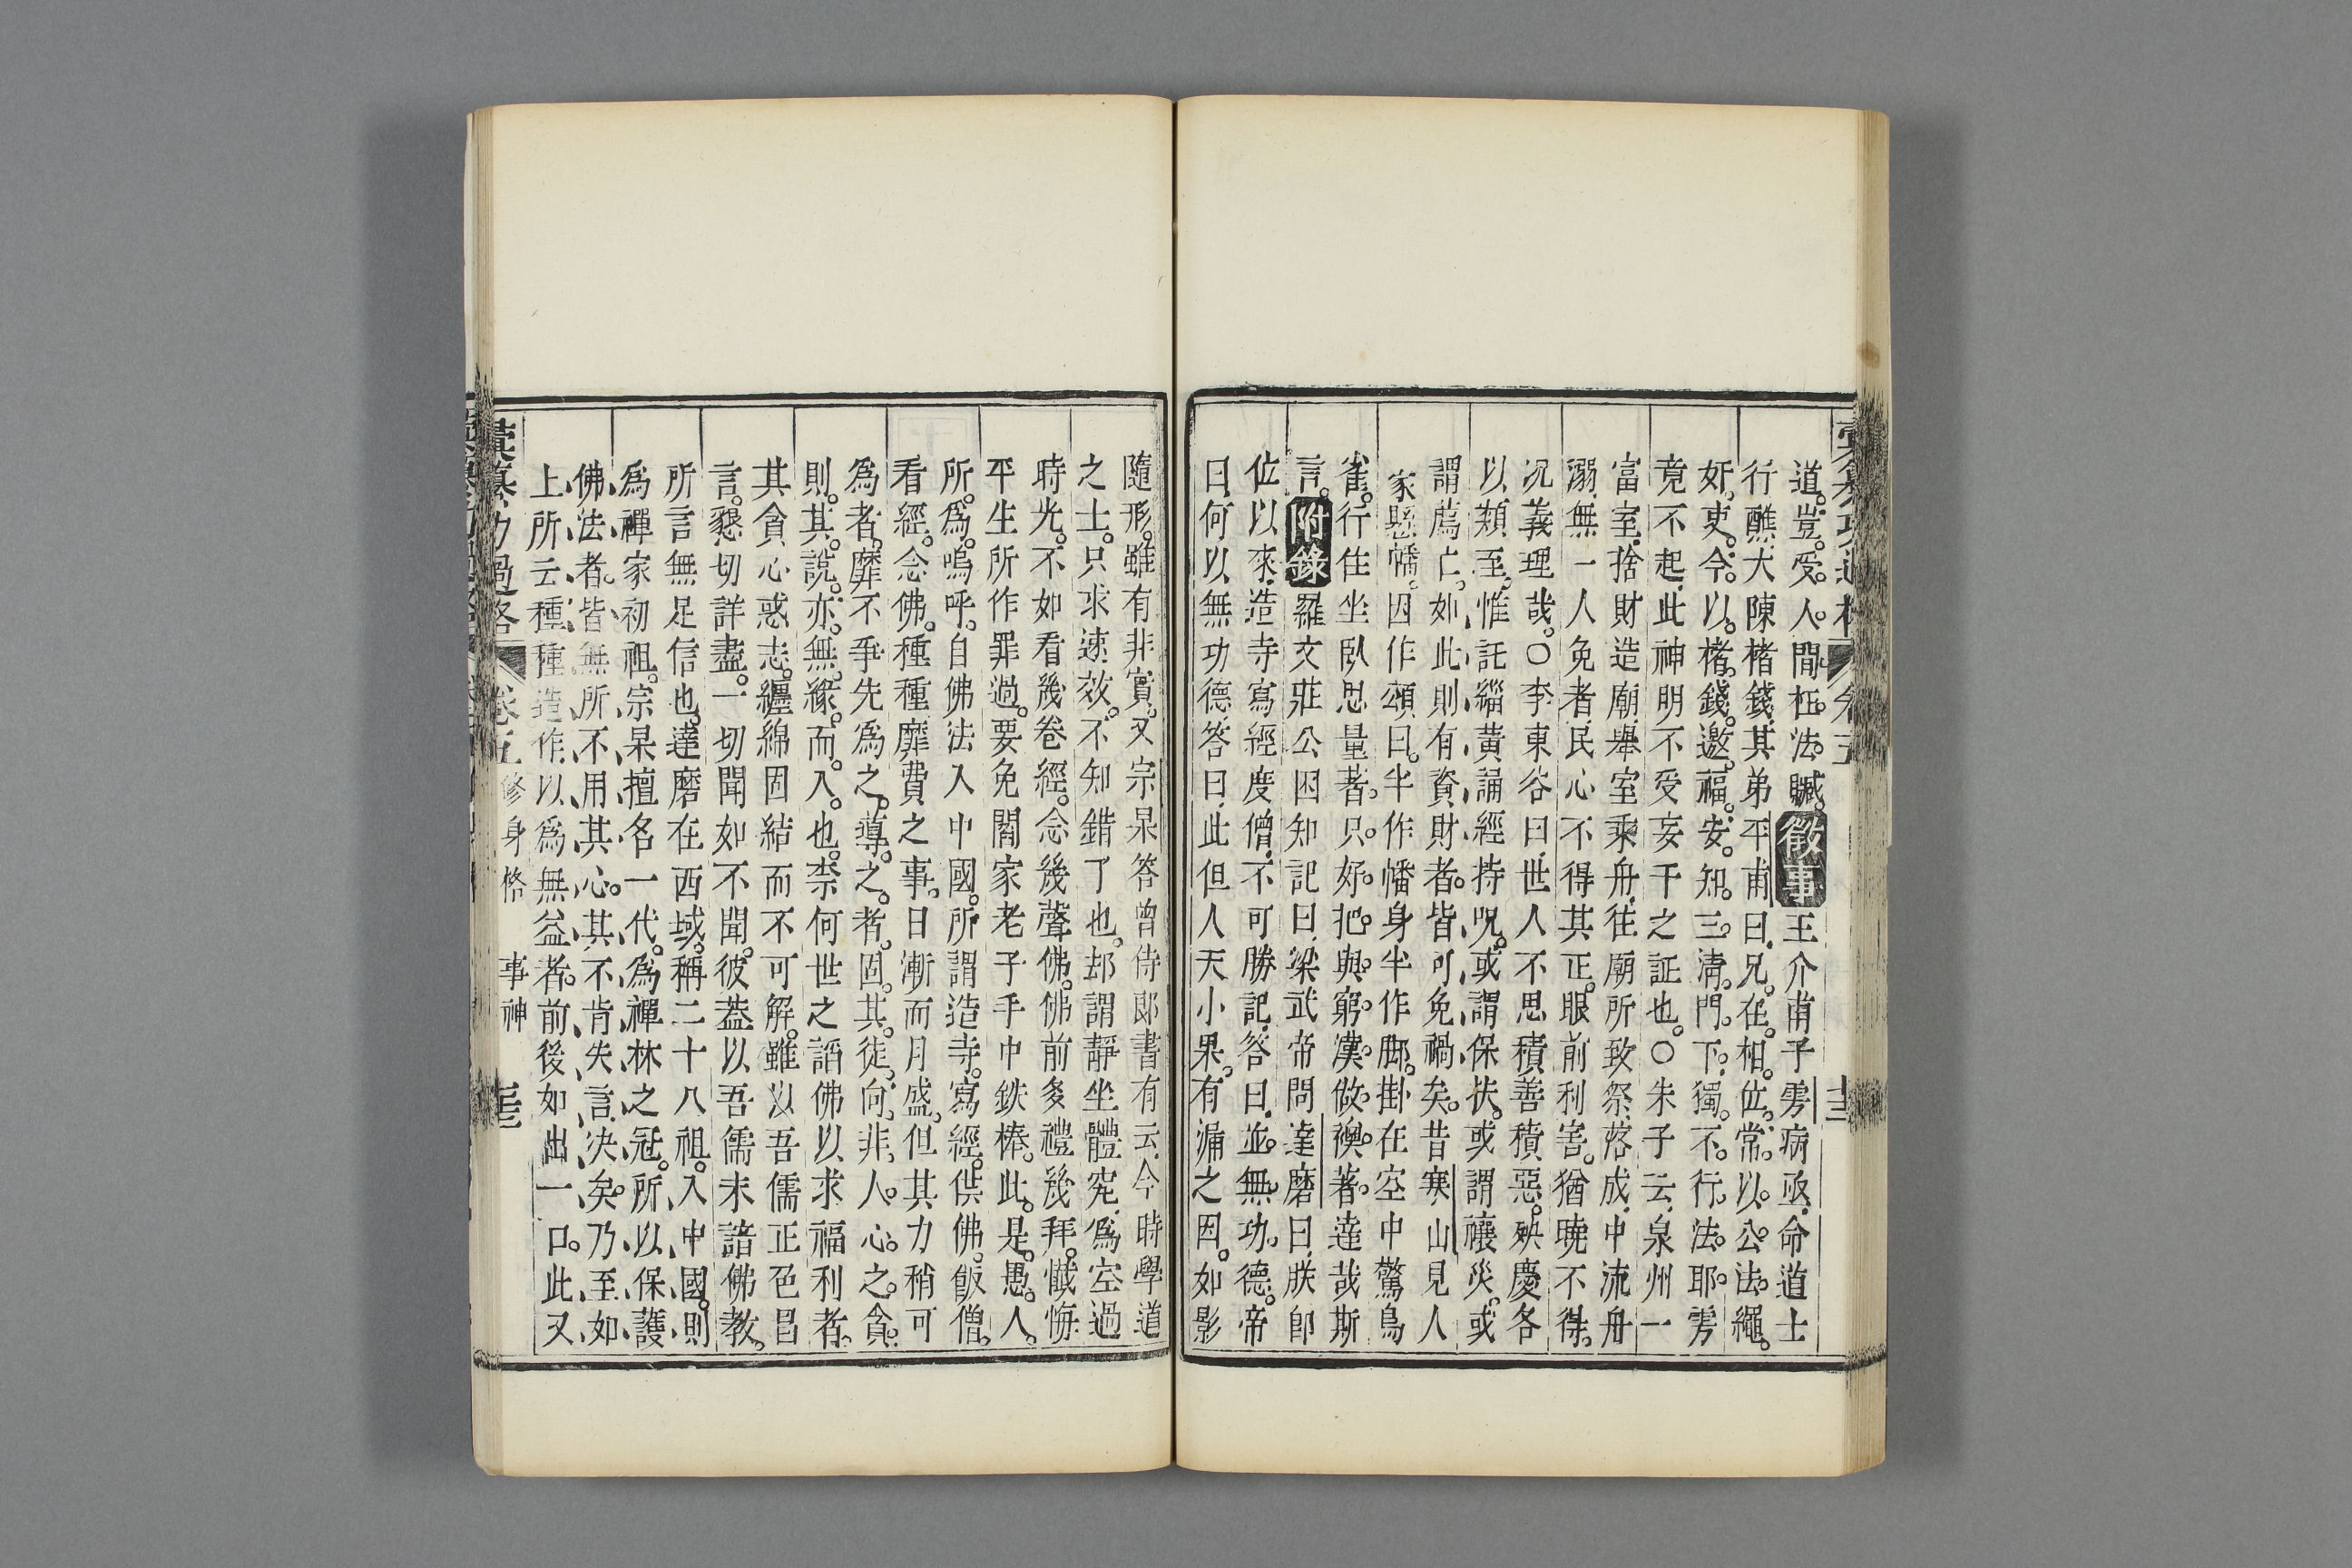 道。豈。受。人。間。枉。法。贓。徵事王介甫子雱病亟。命道士
行醮。大陳楮錢。其弟平甫曰。兄。在。相。位。常。以。公。法。繩。
奸。吏。今。以。楮。錢。邀。福。安。知。三。清。門。下。獨。不。行。法。耶。雱
竟不起。此神明不受妄干之証也。○朱子云。泉州一
富室。捨財造廟。舉室乘舟。往廟所致祭。落成。中流舟
溺。無一人免者。民心不得其正。眼前利害。猶曉不得。
況義理哉。○李東谷曰。世人不思積善積惡。殃慶各
以類至。惟託緇黃誦經持呪。或謂保扶。或謂禳災。或
謂薦亡。如此則有資財者。皆可免禍矣。昔寒山見人
家懸幡。因作頌曰。半作幡身半作脚。掛在空中驚鳥
雀。行住坐臥思量著。只。好。把。與。窮。漢。做。襖。著。達哉斯
言。附錄羅文莊公困知記曰。梁武帝問達磨曰。朕卽
位以來。造寺寫經度僧。不可勝記。答曰。並。無。功。德。帝
曰。何以無功德。答曰。此但人天小果。有漏之因。如影
隨形。雖有非實。又宗杲答曾侍郎書有云。今時學道
之士。只求速效。不知錯了也。却謂靜坐體究。爲空過
時光。不如看幾卷經。念幾聲佛。佛前多禮幾拜。懺悔
平生所作罪過。要免閻家老子手中鉄棒。此。是。愚。人。
所。爲。嗚呼。自佛法入中國。所謂造寺。寫經。供佛。飯僧。
看經。念佛。種種靡費之事。日漸而月盛。但其力稍可
爲者。靡不爭先爲之。導。之。者。固。其。徒。向。非。人。心。之。貪。
則。其。說。亦。無。緣。而。入。也。柰何世之謟佛以求福利者。
其貪心惑志。纏綿固結而不可解。雖以吾儒正色昌
言。懇切詳盡。一切聞如不聞。彼葢以吾儒未諳佛教。
所言無足信也。達磨在西域。稱二十八祖。入中國。則
爲禪家初祖。宗杲擅名一代。爲禪林之冠。所以保護
佛法者。皆無所不用其心。其不肯失言。决矣。乃至如
上所云種種造作。以爲無益者。前後如出一口。此又
彙纂功過格 卷五 修身格 事神